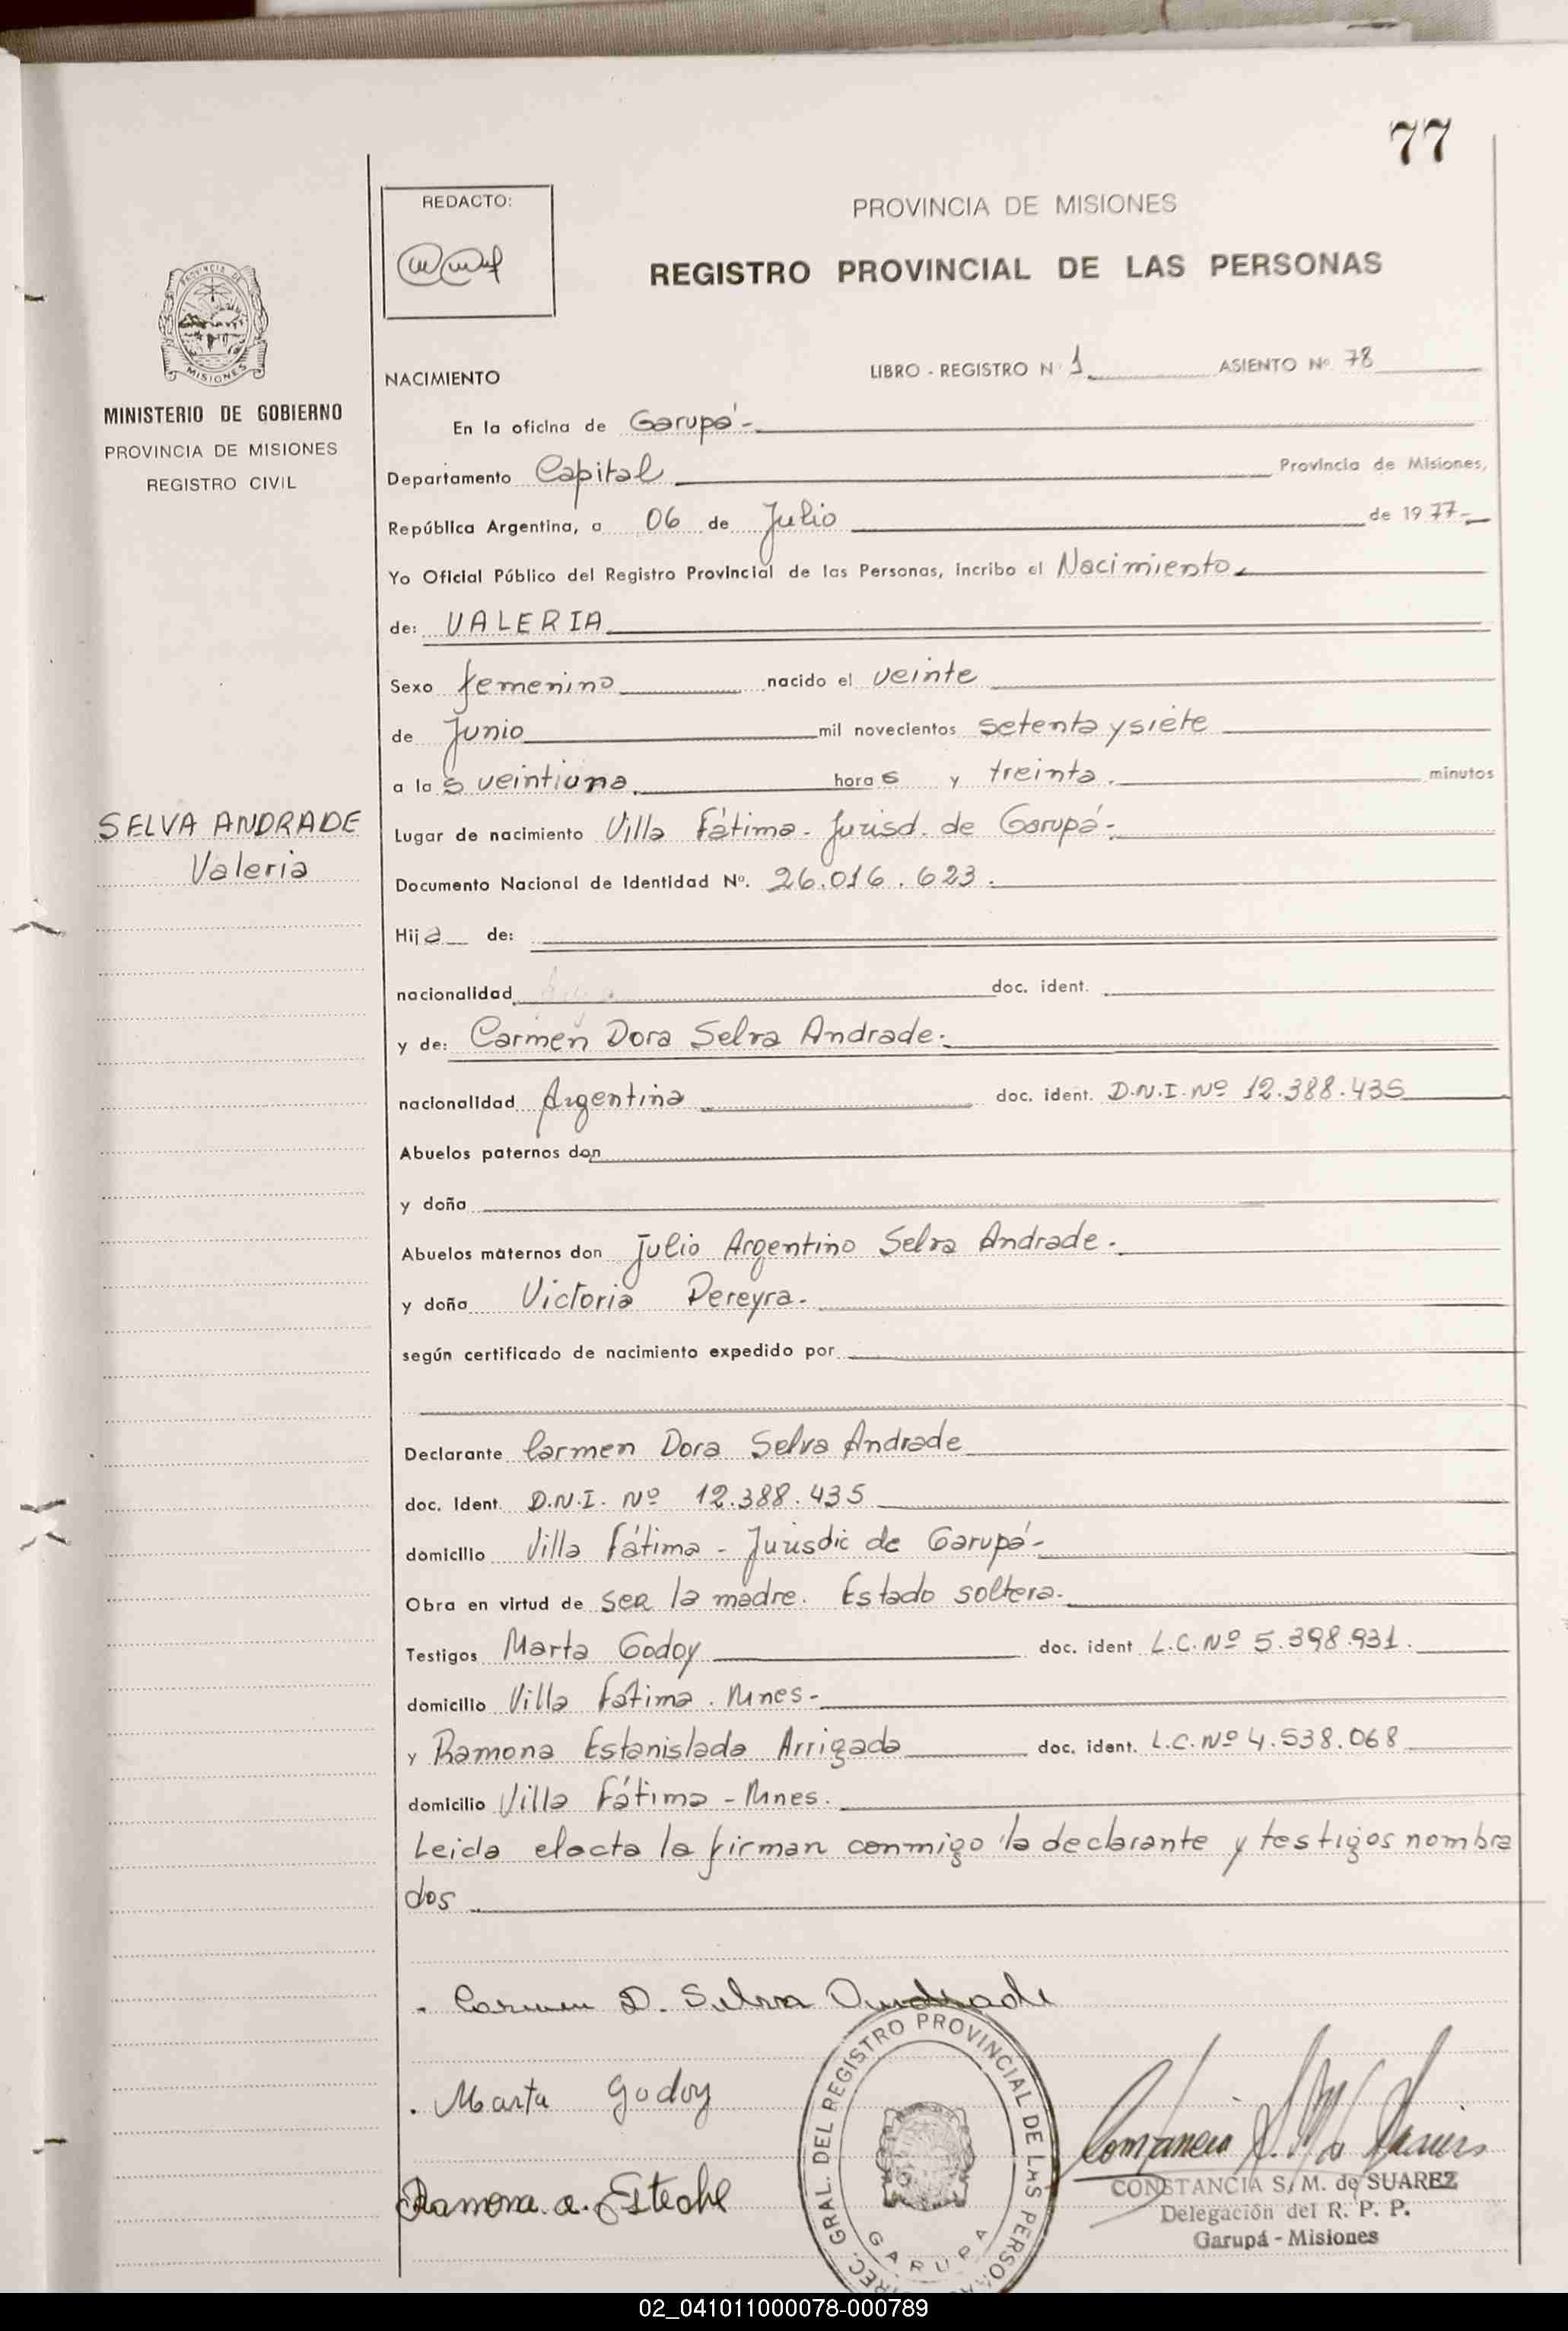 77
REDACTO:
PROVINCIA DE MISIONES
REGISTRO PROVINCIAL DE LAS PERSONAS
PROVINCIA DE
MISIONES
MINISTERIO DE GOBIERNO
PROVINCIA DE MISIONES
REGISTRO CIVIL
NACIMIENTO
LIBRO - REGISTRO N 1 ASIENTO Nº 78
En la oficina de Garupá-
Departamento Capital Provincia de Misiones,
República Argentina, a 06 de Julio de 1977-
Yo Oficial Público del Registro Provincial de las Personas, incribo el Nacimiento
de: VALERIA
Sexo femenino nacido el veinte
de Junio mil novecientos setenta y siete
a las veintiuna horas y treinta. minutos
SELVA ANDRADE
Valeria
Lugar de nacimiento Villa Fátima- Jurisd. de Garupá-
Documento Nacional de Identidad Nº. 26.016.623.
Hija de:
nacionalidad doc. ident.
y de: Carmen Dora Selva Andrade.
nacionalidad Argentina doc. ident. D.N.I. Nº 12.388.435
Abuelos paternos don
y doña
Abuelos maternos don Julio Argentino Selva Andrade-
y doña Victoria Pereyra-
según certificado de nacimiento expedido por
Declarante Carmen Dora Selva Andrade
doc. Ident. D.N.I. Nº 12.388.435
domicilio Villa Fátima - Jurisdic de Garupá-
Obra en virtud de ser la madre. Estado soltera.
Testigos Marta Godoy doc. ident L.C. Nº 5.398.931.
domicilio Villa Fátima. Mnes-
y Ramona Estanislada Arrigada doc. ident. L.C. Nº 4.538.068
domicilio Villa Fátima - Mnes.
Leida el acta la firman conmigo la declarante y testigos nombra
dos
Carmen D. Selva Andrade
Marta Godoy
Ramona a.
DIREC. GRAL. DEL REGISTRO PROVINCIAL DE LAS PERSONAS
GARUPA
CONSTANCIA S. M. de SUAREZ
Delegación del R. P. P.
Garupá - Misiones
02_041011000078-000789